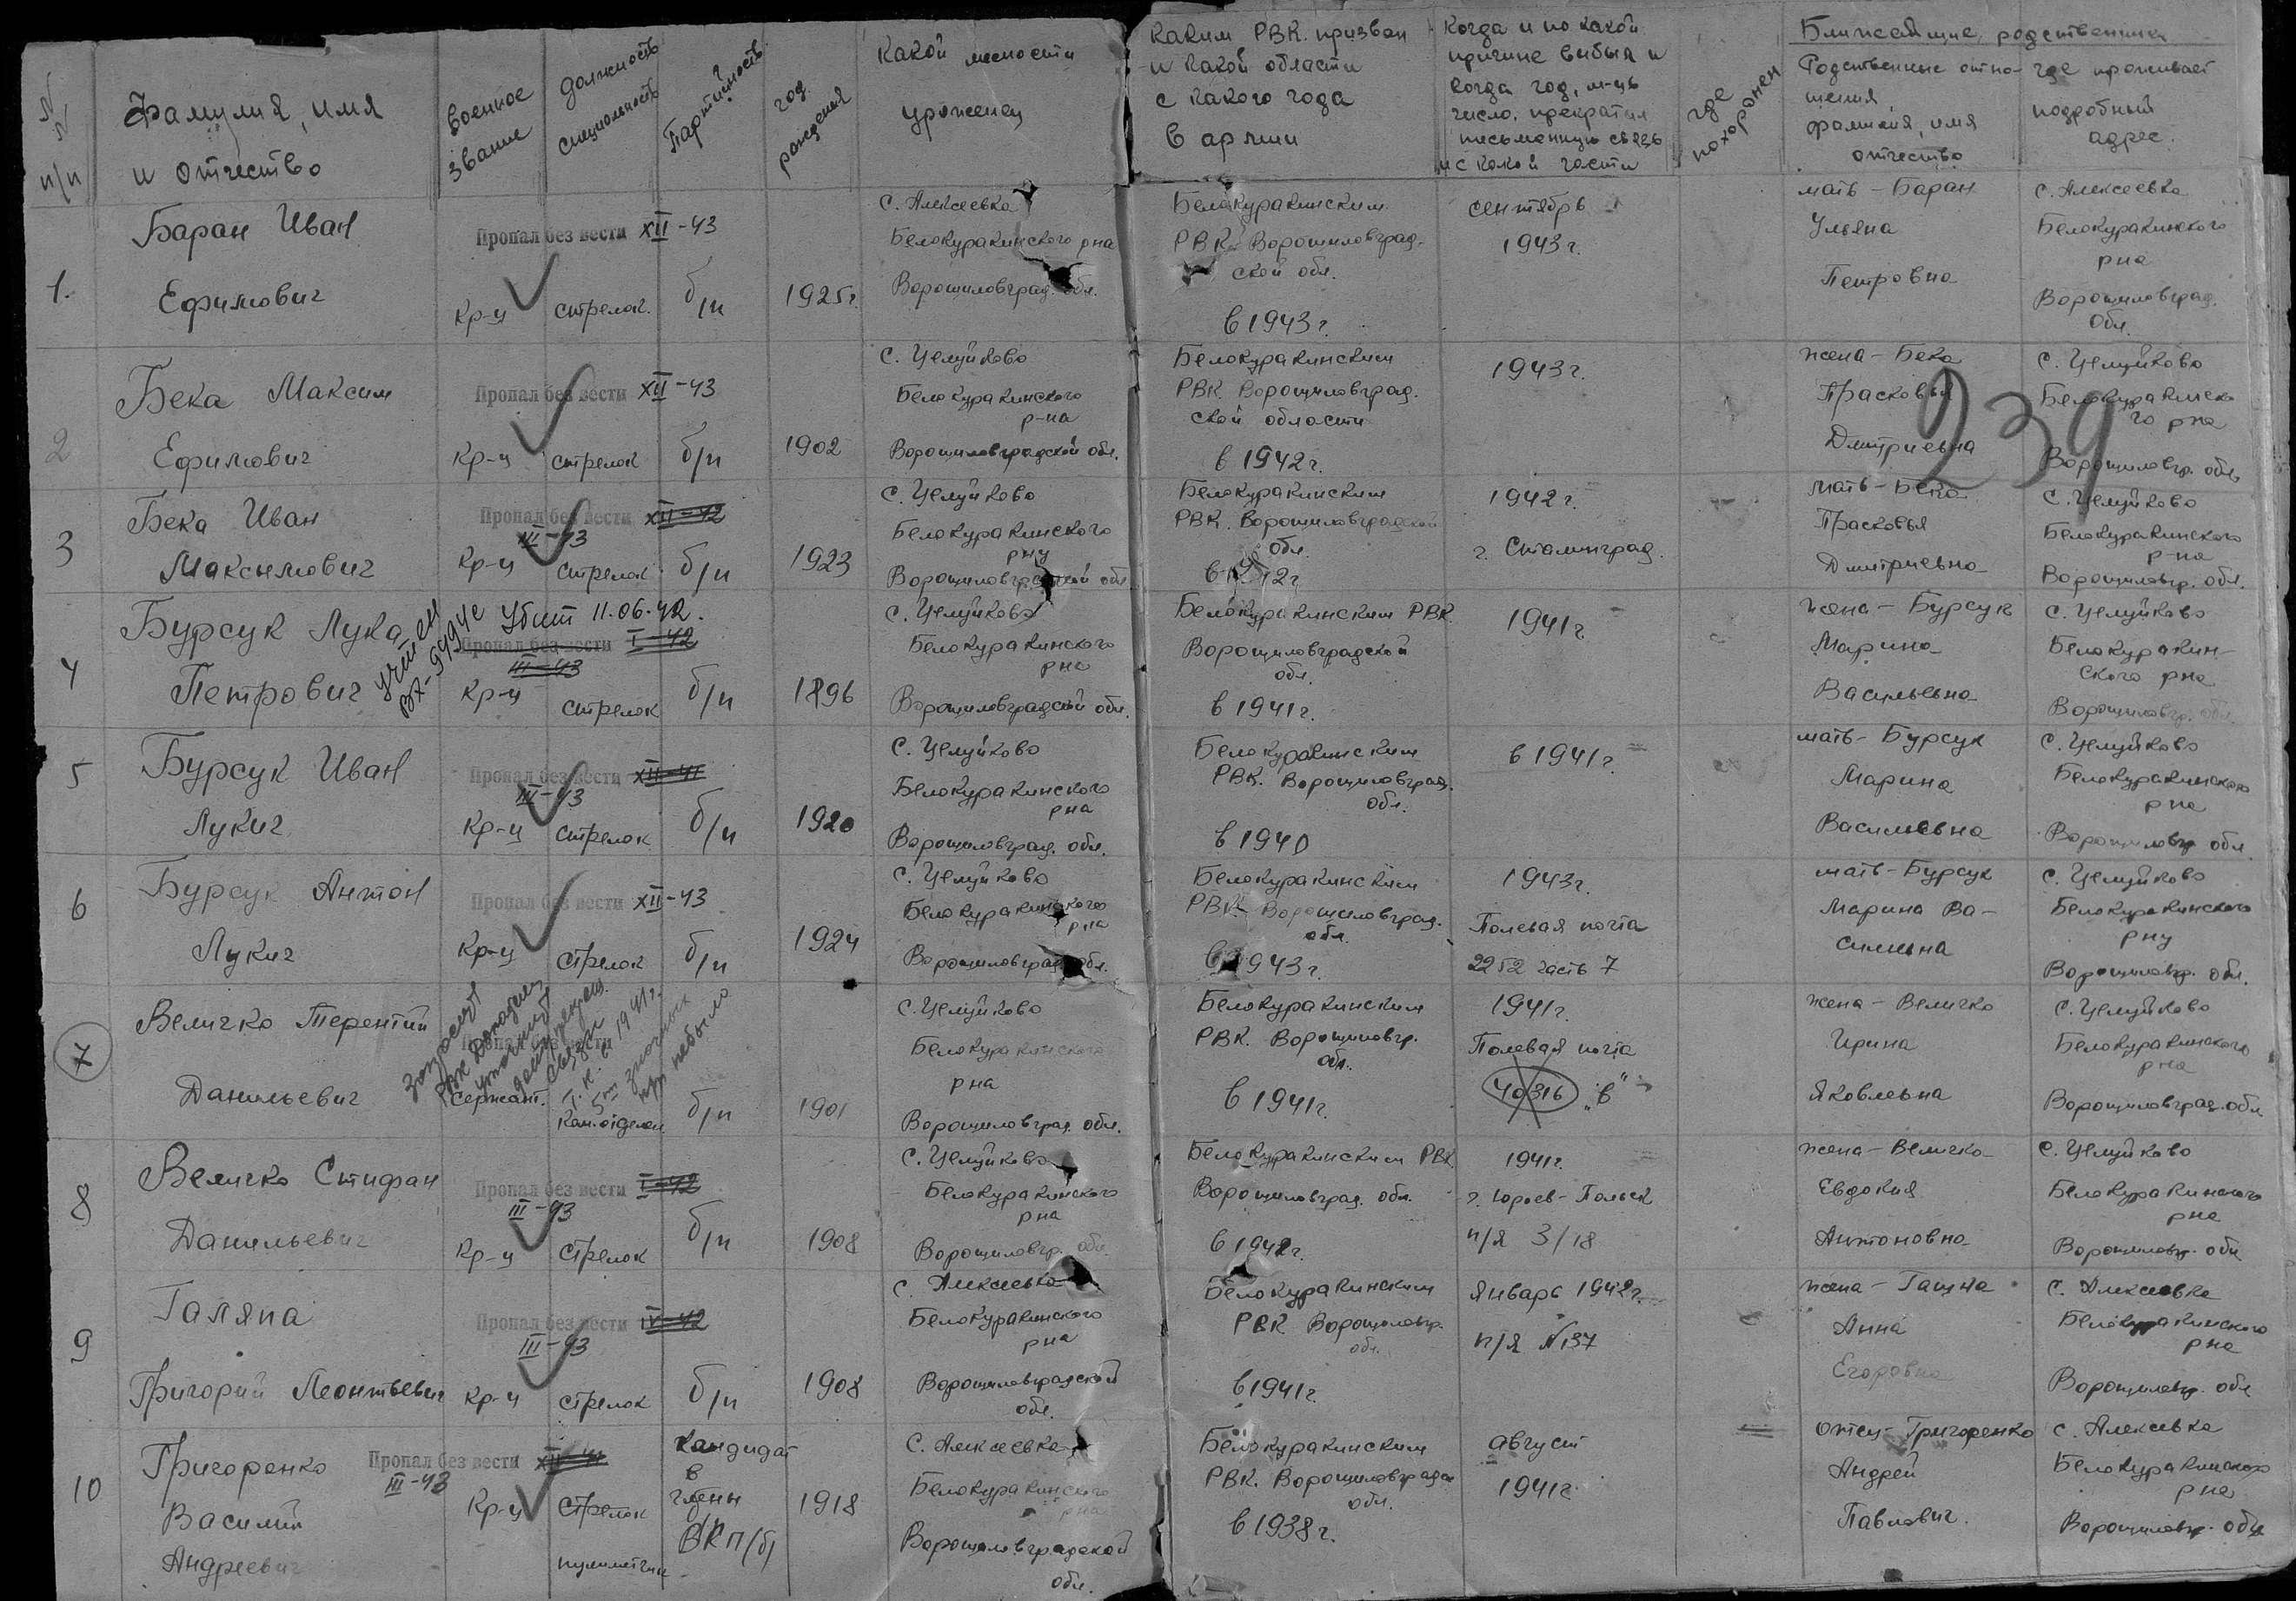 N N п/п
Фамилия, имя
и отчество
военное
звание
должность
специальность
Партийность
год
рождения
Какой месности
уроженец
Каким РВК. призван
и какой области
с какого года
в армии
Когда и по какой
причине выбыл и
когда год, м-ць
число, прекратил
письменную связь
и с какой части
где
похоронен
Ближайшие родственники
Родственные отно-
шения,
фамилия, имя
отчество
где проживает
подробный
адрес.
1.
Баран Иван
Ефимович
Пропал без вести XII-43
Кр-ц
стрелок.
б/п
1925г.
с. Алексеевка
Белокуракинского рна
Ворошиловград. обл.
Белокуракинским
РВК Ворошиловград-
ской обл.
в 1943 г.
сентябрь
1943 г.
мать - Баран
Ульяна
Петровна
с. Алексеевка
Белокуракинского
рна
Ворошиловград.
Обл.
239
2
Бека Максим
Ефимович
Пропал без вести XII-43
Кр-ц
стрелок
б/п
1902
с. Целуйково
Белокуракинского
р-на
Ворошиловградской обл.
Белокуракинским
РВК. Ворошиловград.
ской области
в 1942 г.
1943 г.
жена - Бека
Прасковья
Дмитриевна
с. Целуйково
Белокуракинско
го рна
Ворошиловгр. обл.
3
Бека Иван
Максимович
Пропал без вести XII-42
III-43
Кр-ц
стрелок
б/п
1923
с. Целуйково
Белокуракинского
рну
Ворошиловградской обл
Белокуракинским
РВК. Ворошиловградской
обл.
1942 г.
г. Сталинград.
мать - Бека
Прасковья
Дмитриевна
с. Целуйково
Белокуракинского
р-на
Ворошиловгр. обл.
4
Бурсук Лука
Петрович
учтен
вх-99194с
Убит 11.06.42.
Пропал без вести I-42
III-43
Кр-ц
стрелок
б/п
1896
с. Целуйково
Белокуракинского
рна
Ворошиловградской обл.
Белокуракинским РВК
Ворошиловградской
обл.
в 1941 г.
1941 г
жена - Бурсук
Марина
Васильевна
с. Целуйково
Белокуракин-
ского рна
Ворошиловгр. обл.
5
Бурсук Иван
Лукич
Пропал без вести XII-41
III-43
Кр-ц
стрелок
б/п
1920
с. Целуйково
Белокуракинского
рна
Ворошиловград. обл.
Белокуракинским
РВК. Ворошиловград.
обл.
в 1940
в 1941 г.
мать - Бурсук
Марина
Васильевна
с. Целуйково
Белокуракинского
рна
Ворошиловгр обл
6
Бурсук Антон
Лукич
Пропал без вести XII-43
Кр-ц
Стрелок
б/п
1924
с. Целуйково
Белокуракинского
рна
Ворошиловград. обл.
Белокуракинским
РВК Ворошиловград.
обл.
в 1943 г.
1943 г.
Полевая почта
2252 часть 7
мать - Бурсук
Марина Ва-
сильевна
с. Целуйково
Белокуракинского
рну
Ворошиловгр. обл.
7
Величко Терентий
Данильевич
Пропал без вести
Сержант.
Ком. отделен
б/п
1901
с. Целуйково
Белокуракинского
рна
Ворошиловград. обл.
Белокуракинским
РВК. Ворошиловгр.
обл.
в 1941 г.
1941 г.
Полевая почта
40316 „в"
жена - Величко
Ирина
Яковлевна
с. Целуйково
Белокуракинского
рна
Ворошиловград. обл
8
Величко Стифан
Данильевич
Пропал без вести I-42
III-43
Кр-ц
Стрелок
б/п
1908
с. Целуйково
Белокуракинского
рна
Ворошиловгр. обл.
Белокуракинским РВК
Ворошиловград. обл.
в 1942 г.
1941 г.
г. Юрьев-Польск
п/я 3/18
жена - Величко
Евдокия
Антоновна
с. Целуйково
Белокуракинского
рна
Ворошиловгр. обл
9
Галяпа
Григорий Леонтьевич
Пропал без вести IV-42
III-43
Кр-ц
стрелок
б/п
1908
с. Алексеевка
Белокуракинского
рна
Ворошиловградской
обл.
Белокуракинским
РВК Ворошиловгр.
обл.
в 1941 г.
Январь 1942 г.
п/я N 137
жена -
Анна
Егоровна
с. Алексеевка
Белокуракинского
рна
Ворошиловгр. обл
10
Григоренко
Василий
Андреевич
Пропал без вести XII-41
III-43
Кр-ц
Стрелок
пулиметчик
Кандидат
в
члены
ВКП/б/
1918
с. Алексеевка
Белокуракинского
рна
Ворошиловградской
обл.
Белокуракинским
РВК. Ворошиловградск
обл.
в 1938 г.
август
1941 г.
отец - Григоренко
Андрей
Павлович.
с. Алексеевка
Белокуракинского
рна
Ворошиловгр. обл